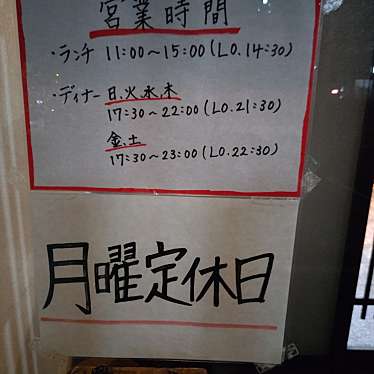 営業時間
・ランチ 11:00～15:00(L.O.14:30)
・ディナー 日、火、水、木
17:30～22:00(L.O.21:30)
金、土
17:30～23:00(L.O.22:30)
月曜定休日